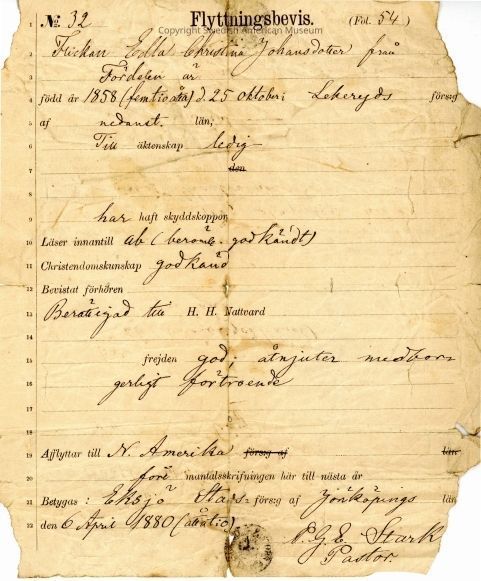 No: 32 Flyttningsbevis. (Fol. 54)
Copyright Swedish American Museum
1
2 Flickan Edla Christina Johansdotter från
3 Fördelen är
4 född år 1858 (femtioåtta) d. 25 oktober i Lekeryds församl.
5 af nedanst. län;
6 Till äktenskap ledig
7 den
8
9 har haft skyddskoppor
10 Läser innantill ab (berömb. godkändt)
11 Christendomskunskap godkänd
12 Bevistat förhören
13 Berättigad till H. H. Nattvard
14
15 frejden god; åtnjuter medbor-
16 gerligt förtroende
17
18
19 Afflyttar till N. Amerika län
20 före mantalsskrifningen här till nästa år
21 Betygas: Eksjö Stads- församl. af Jönköpings län
22 den 6 April 1880 (åttatio)
P. G. E. Stark
Pastor.